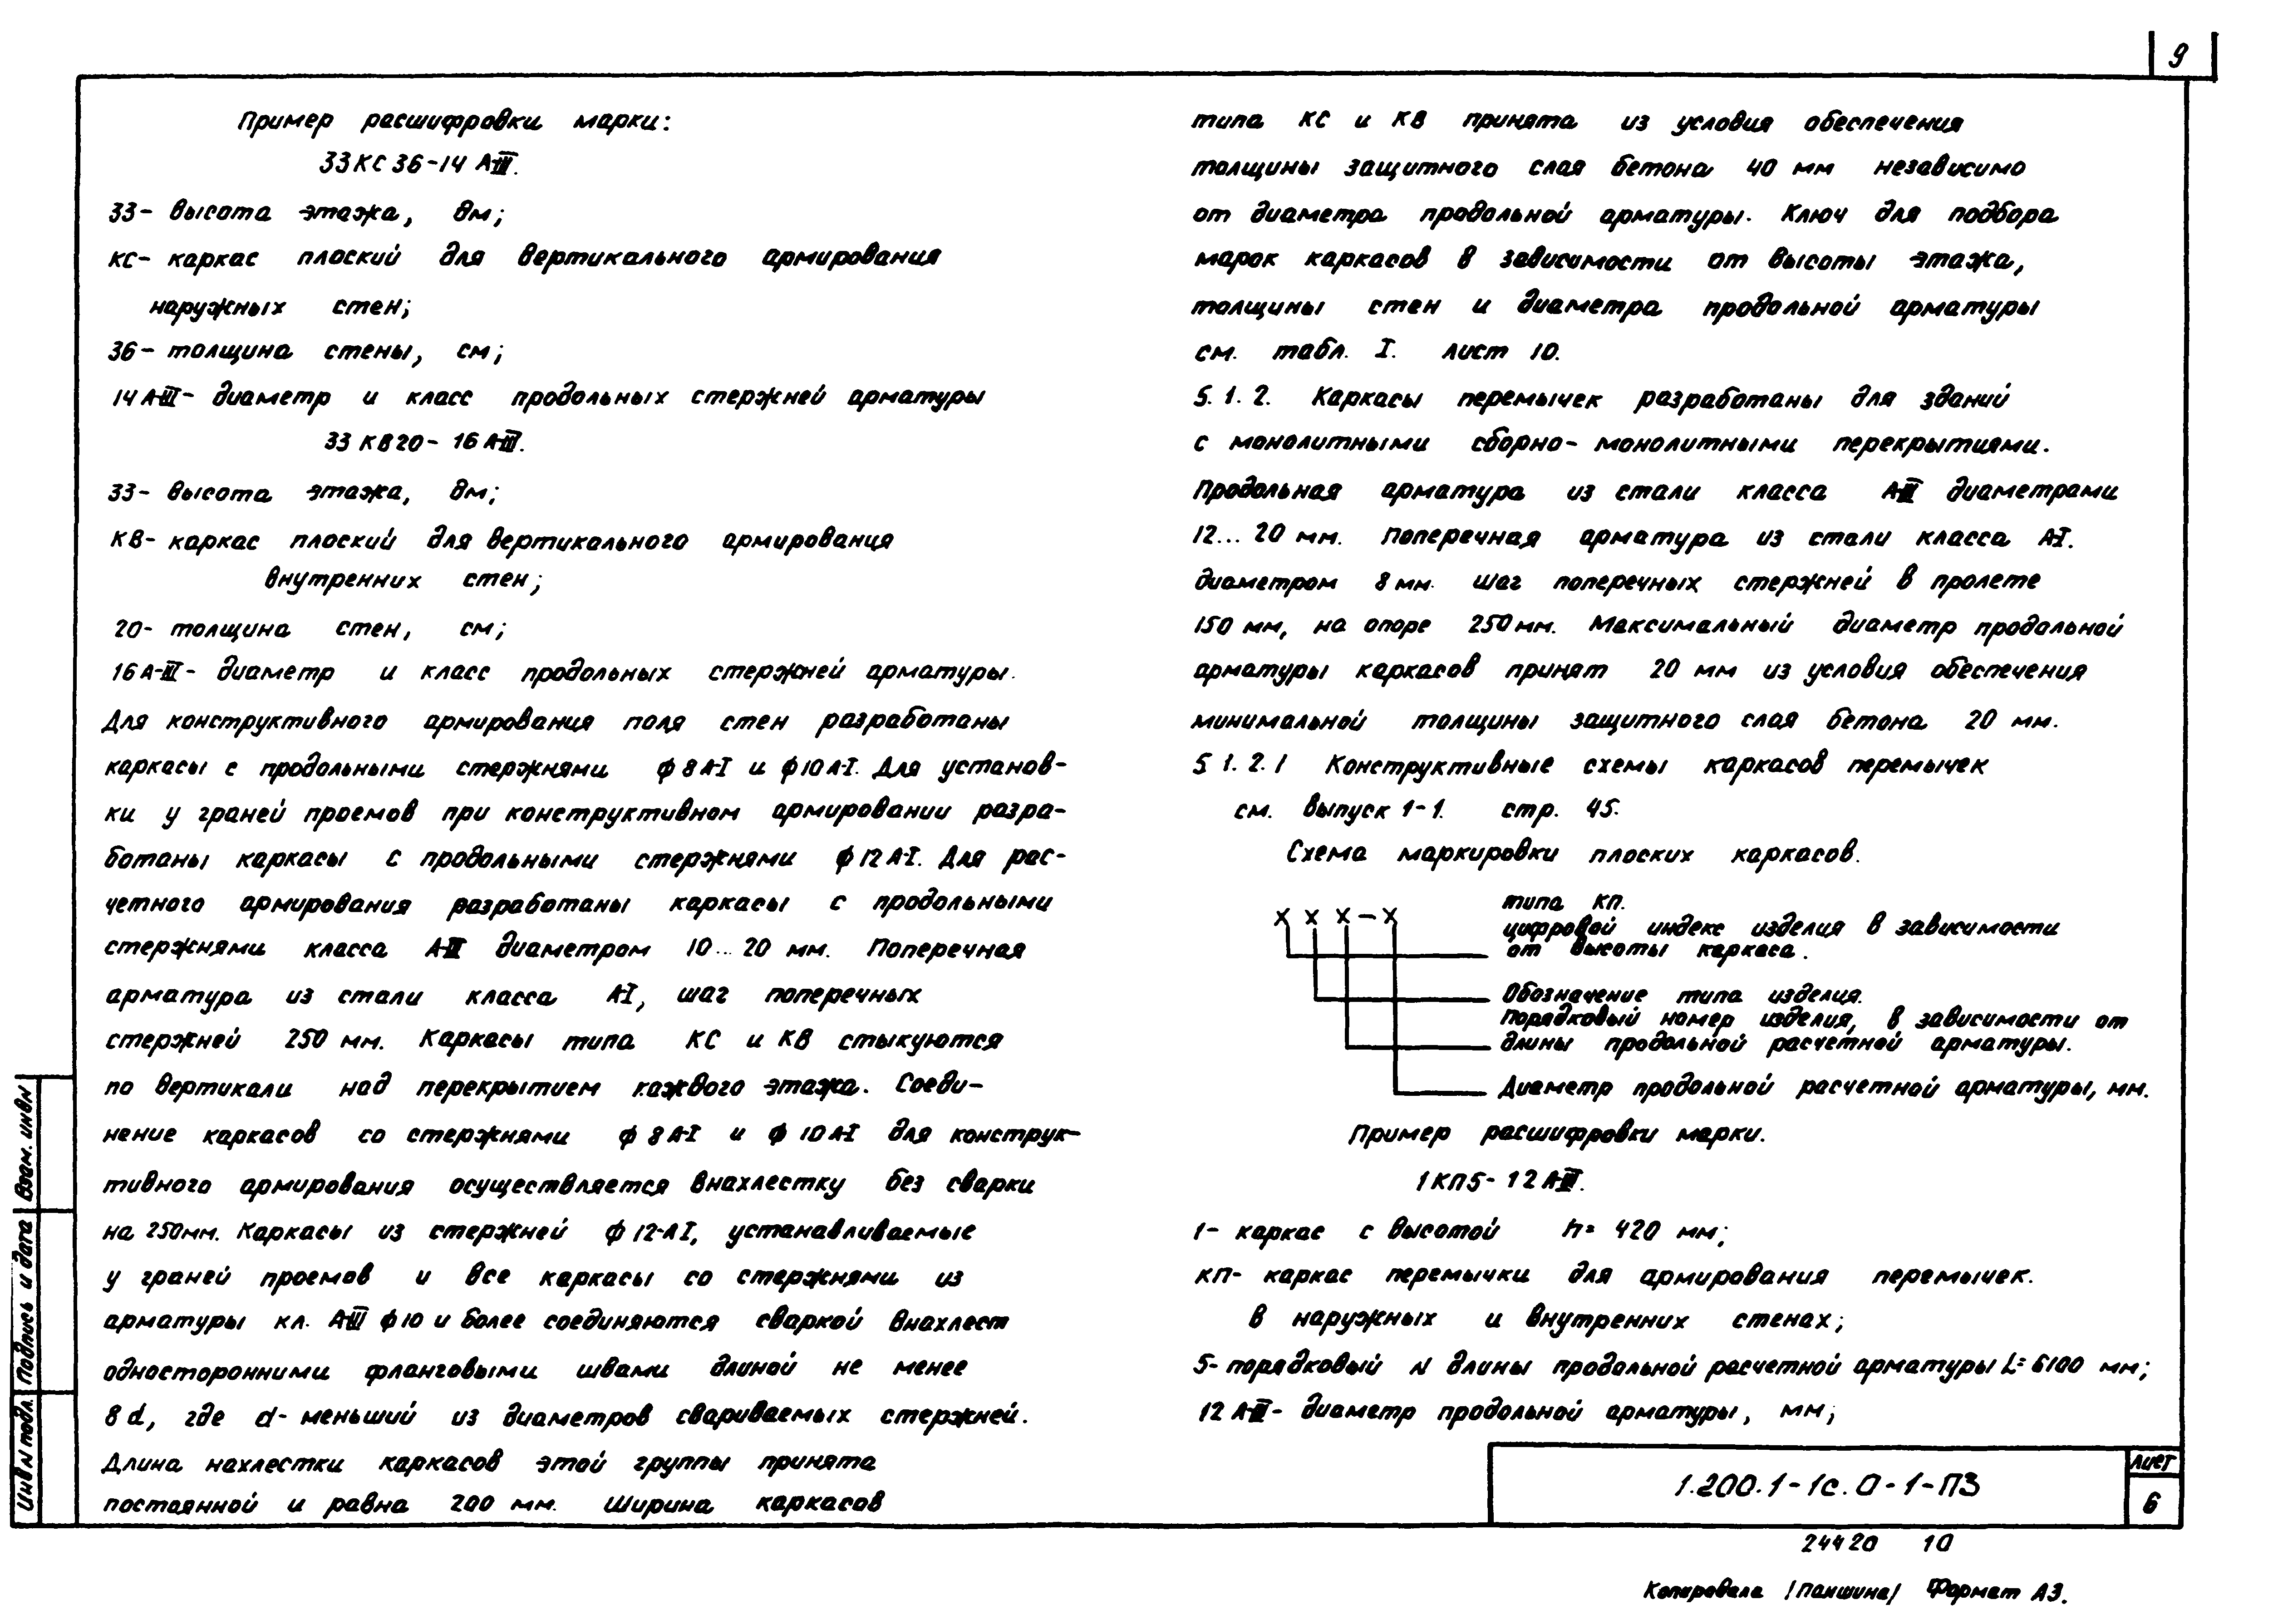 9
Пример расшифровки марки:
33КС 36-14 А-III.
33- высота этажа, дм;
КС- каркас плоский для вертикального армирования
наружных стен;
36- толщина стены, см;
14 А-III- диаметр и класс продольных стержней арматуры
33 КВ20- 16 А-III.
33- высота этажа, дм;
КВ- каркас плоский для вертикального армирования
внутренних стен;
20- толщина стен, см;
16 А-III- диаметр и класс продольных стержней арматуры.
Для конструктивного армирования поля стен разработаны
каркасы с продольными стержнями ф 8 А-I и ф 10 А-I. Для установ-
ки у граней проемов при конструктивном армировании разра-
ботаны каркасы с продольными стержнями ф 12 А-I. Для рас-
четного армирования разработаны каркасы с продольными
стержнями класса А-III диаметром 10...20 мм. Поперечная
арматура из стали класса А-I, шаг поперечных
стержней 250 мм. Каркасы типа КС и КВ стыкуются
по вертикали над перекрытием каждого этажа. Соеди-
нение каркасов со стержнями ф 8 А-I и ф 10 А-I для конструк-
тивного армирования осуществляется внахлестку без сварки
на 250мм. Каркасы из стержней ф 12-А I, устанавливаемые
у граней проемов и все каркасы со стержнями из
арматуры кл. А-III ф 10 и более соединяются сваркой внахлест
односторонними фланговыми швами длиной не менее
8 d, где d- меньший из диаметров свариваемых стержней.
Длина нахлестки каркасов этой группы принята
постоянной и равна 200 мм. Ширина каркасов
типа КС и КВ принята из условия обеспечения
толщины защитного слоя бетона 40 мм независимо
от диаметра продольной арматуры. Ключ для подбора
марок каркасов в зависимости от высоты этажа,
толщины стен и диаметра продольной арматуры
см. табл. I. лист 10.
5. 1. 2. Каркасы перемычек разработаны для зданий
с монолитными сборно- монолитными перекрытиями.
Продольная арматура из стали класса А-III диаметрами
12... 20 мм. Поперечная арматура из стали класса А-I.
диаметром 8 мм. шаг поперечных стержней в пролете
150 мм, на опоре 250 мм. Максимальный диаметр продольной
арматуры каркасов принят 20 мм из условия обеспечения
минимальной толщины защитного слоя бетона 20 мм.
5 1. 2. 1 Конструктивные схемы каркасов перемычек
см. выпуск 1-1. стр. 45.
Схема маркировки плоских каркасов.
типа КП.
Х Х Х - Х
цифровой индекс изделия в зависимости
от высоты каркаса.
Обозначение типа изделия.
порядковый номер изделия, в зависимости от
длины продольной расчетной арматуры.
Диаметр продольной расчетной арматуры, мм.
Пример расшифровки марки.
1 КП5- 12 А-III.
1- каркас с высотой h= 420 мм;
КП- каркас перемычки для армирования перемычек.
в наружных и внутренних стенах;
5- порядковый N длины продольной расчетной арматуры L= 6100 мм;
12 А-III- диаметр продольной арматуры, мм;
Инв N подл. Подпись и дата Взам. инв N
1.200.1-1с.0-1-ПЗ
Лист
6
24420 10
Копировала /Паншина/ Формат А3.